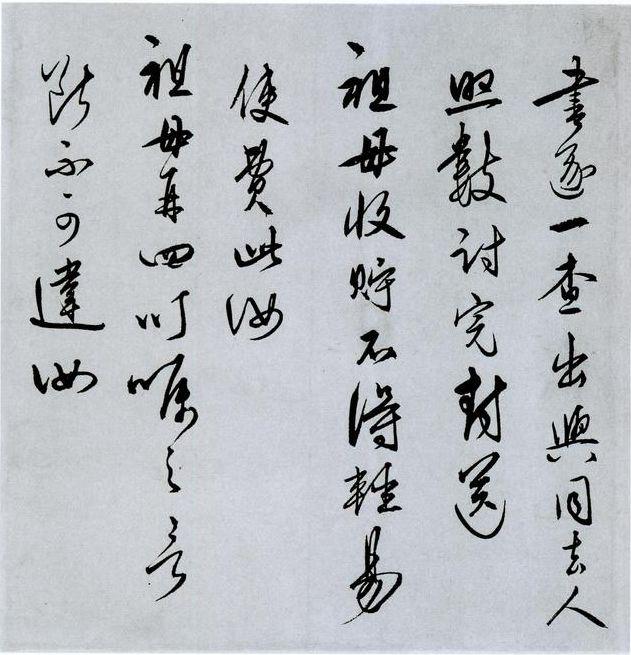 書逐一查出與同去人
照數討完封送
祖母收貯不得輕易
使費此汝
祖母再四叮嚀之言
斷不可違汝